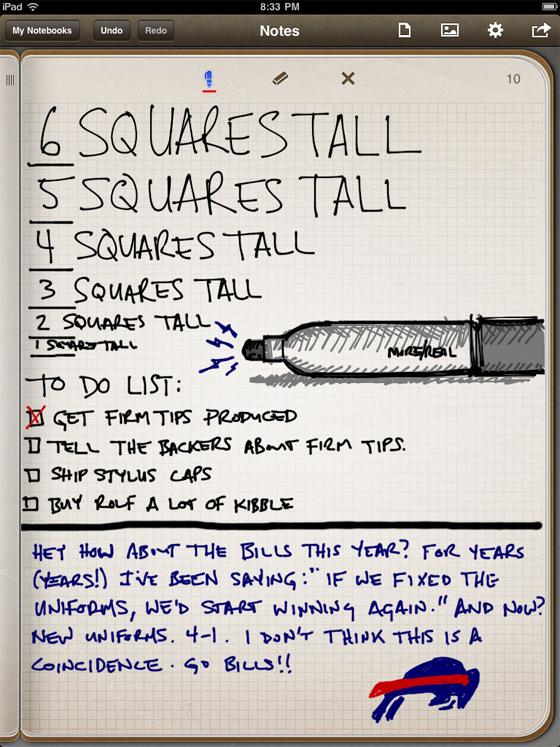 iPad 8:33 PM
My Notebooks Undo Redo Notes
10
6 SQUARES TALL
5 SQUARES TALL
4 SQUARES TALL
3 SQUARES TALL
2 SQUARES TALL
1 SQUARE TALL
MORE/REAL
TO DO LIST:
GET FIRM TIPS PRODUCED
TELL THE BACKERS ABOUT FIRM TIPS.
SHIP STYLUS CAPS
BUY ROLF A LOT OF KIBBLE
HEY HOW ABOUT THE BILLS THIS YEAR? FOR YEARS
(YEARS!) I'VE BEEN SAYING: "IF WE FIXED THE
UNIFORMS, WE'D START WINNING AGAIN." AND NOW?
NEW UNIFORMS. 4-1. I DON'T THINK THIS IS A
COINCIDENCE. GO BILLS!!